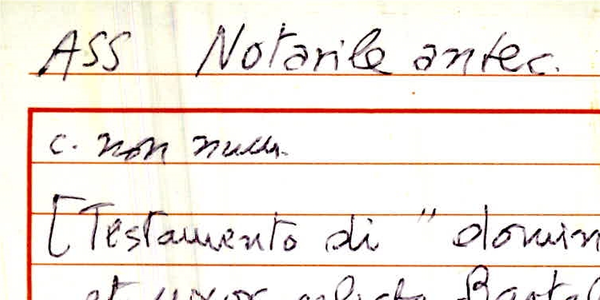 ASS Notarile antec.
c. non num.
[Testamento di " domin
et uxor relicta Bartol